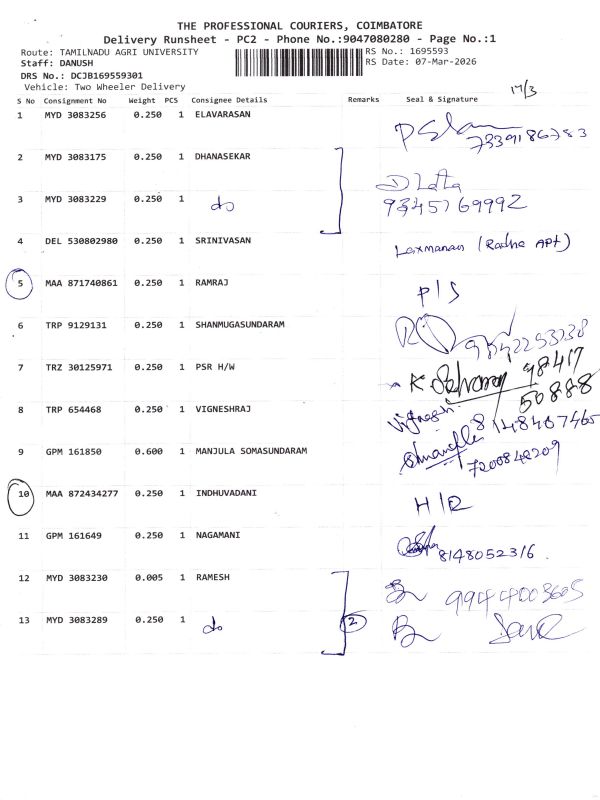 THE PROFESSIONAL COURIERS, COIMBATORE
Delivery Runsheet - PC2 - Phone No.:9047080280 - Page No.:1
Route: TAMILNADU AGRI UNIVERSITY RS No.: 1695593
Staff: DANUSH RS Date: 07-Mar-2026
DRS No.: DCJB169559301
Vehicle: Two Wheeler Delivery
17/3
S No Consignment No Weight PCS Consignee Details Remarks Seal & Signature
1 MYD 3083256 0.250 1 ELAVARASAN
7339186783
2 MYD 3083175 0.250 1 DHANASEKAR
D Latha
3 MYD 3083229 0.250 1 do 9345769992
4 DEL 530802980 0.250 1 SRINIVASAN Laxmanan (Radhe APt)
5 MAA 871740861 0.250 1 RAMRAJ P/S
6 TRP 9129131 0.250 1 SHANMUGASUNDARAM
7 TRZ 30125971 0.250 1 PSR H/W K 98417
50888
8 TRP 654468 0.250 1 VIGNESHRAJ Vignesh 8148407465
9 GPM 161850 0.600 1 MANJULA SOMASUNDARAM
7200842209
10 MAA 872434277 0.250 1 INDHUVADANI H/R
11 GPM 161649 0.250 1 NAGAMANI 8148052316
12 MYD 3083230 0.005 1 RAMESH 9944003605
13 MYD 3083289 0.250 1 do 2